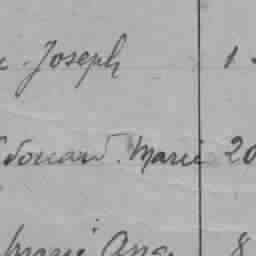 Joseph 1
Edouard. Marie 20
Marie Ang. 8